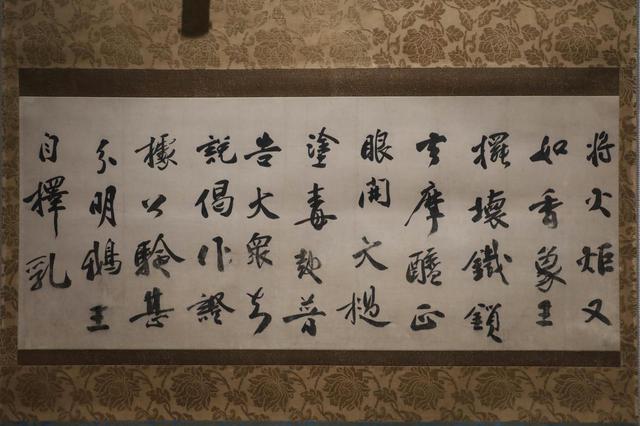 将火炬又
如香象王
擺壞鐵鎖
去摩醯正
眼開又撾
塗毒鼓普
告大衆知
説偈作證
據公驗甚
分明鵝王
自擇乳